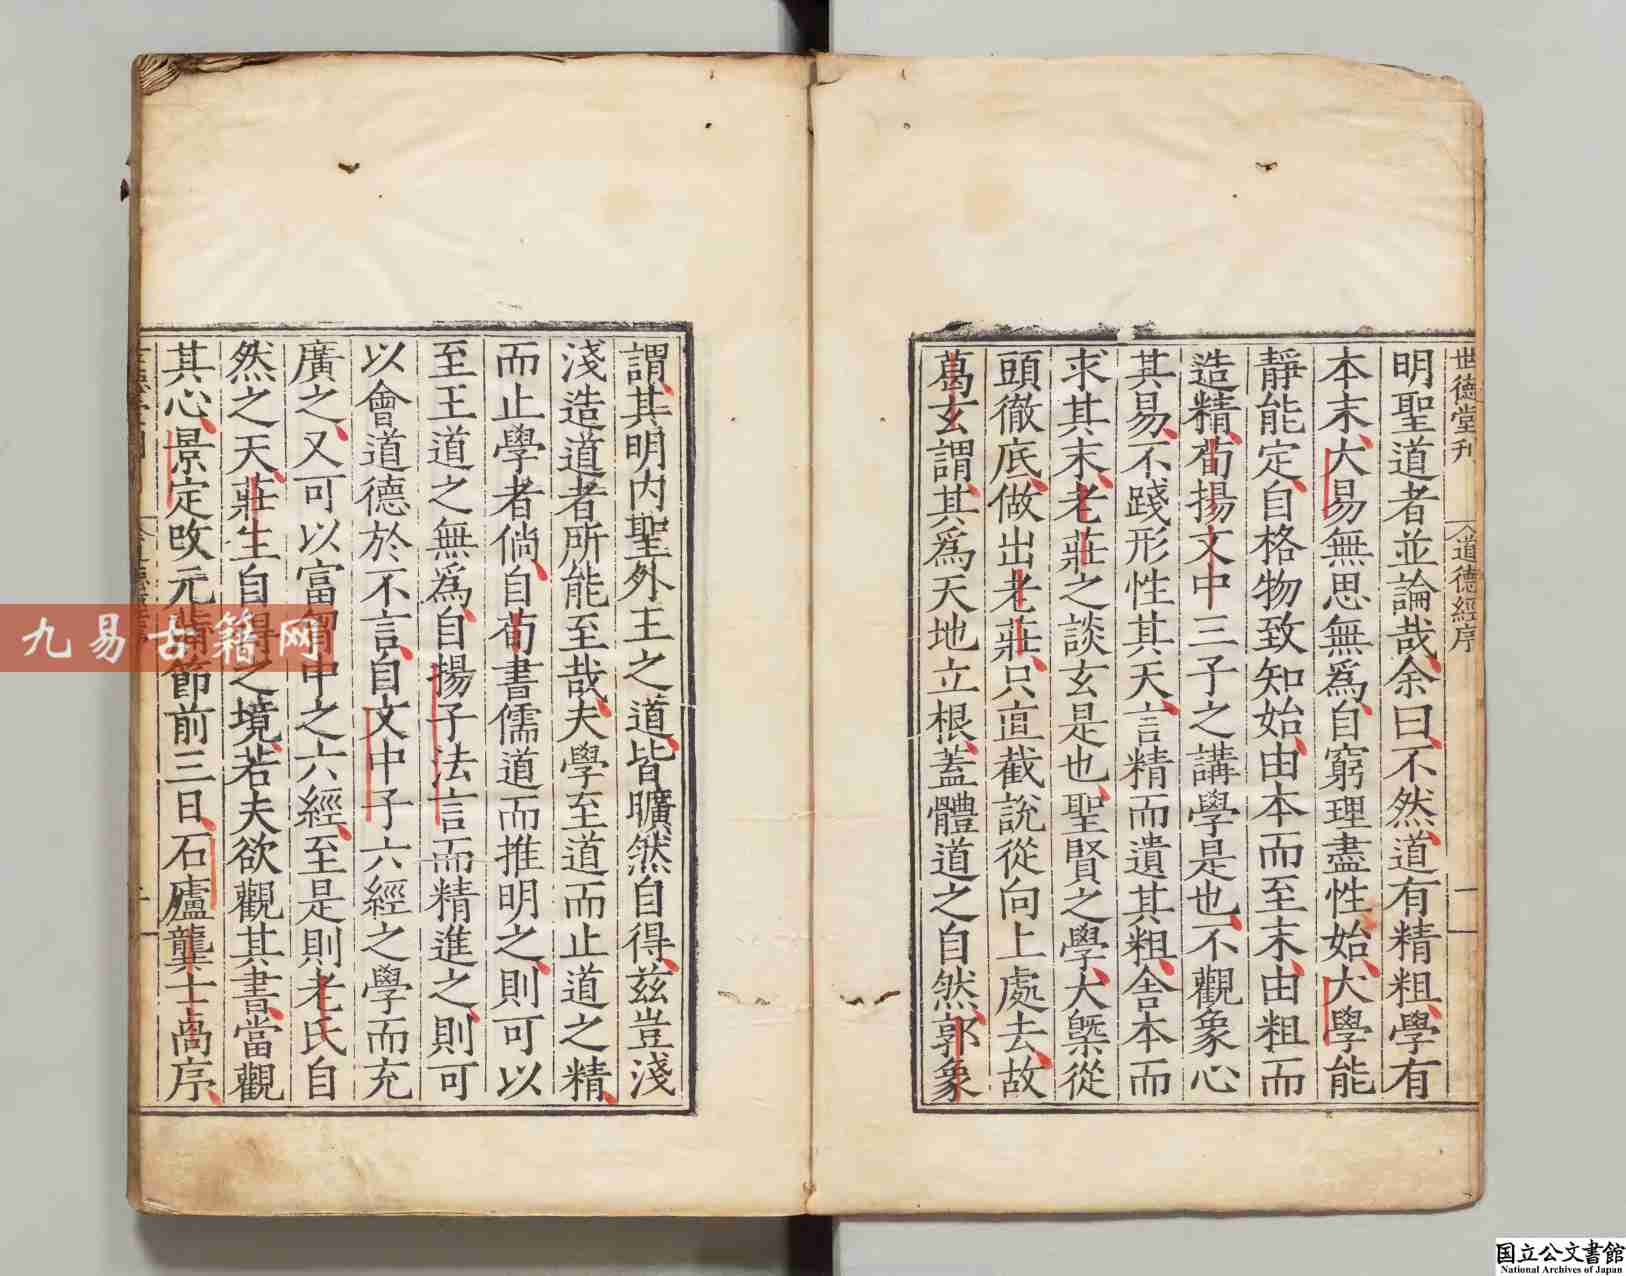 世德堂刊 道德經序 一
明聖道者並論哉余曰不然道有精粗學有
本末大易無思無爲自窮理盡性始大學能
靜能定自格物致知始由本而至末由粗而
造精荀揚文中三子之講學是也不觀象心
其易不踐形性其天言精而遺其粗舍本而
求其末老莊之談玄是也聖賢之學大槩從
頭徹底做出老莊只直截說從向上處去故
葛玄謂其爲天地立根蓋體道之自然郭象
謂其明內聖外王之道皆曠然自得茲豈淺
淺造道者所能至哉夫學至道而止道之精
而止學者倘自荀書儒道而推明之則可以
至王道之無爲自揚子法言而精進之則可
以會道德於不言自文中子六經之學而充
廣之又可以富智中之六經至是則老氏自
然之天莊生自得之境若夫欲觀其書當觀
其心景定改元節前三日石廬龔士卨序
九易古籍网
国立公文書館
National Archives of Japan